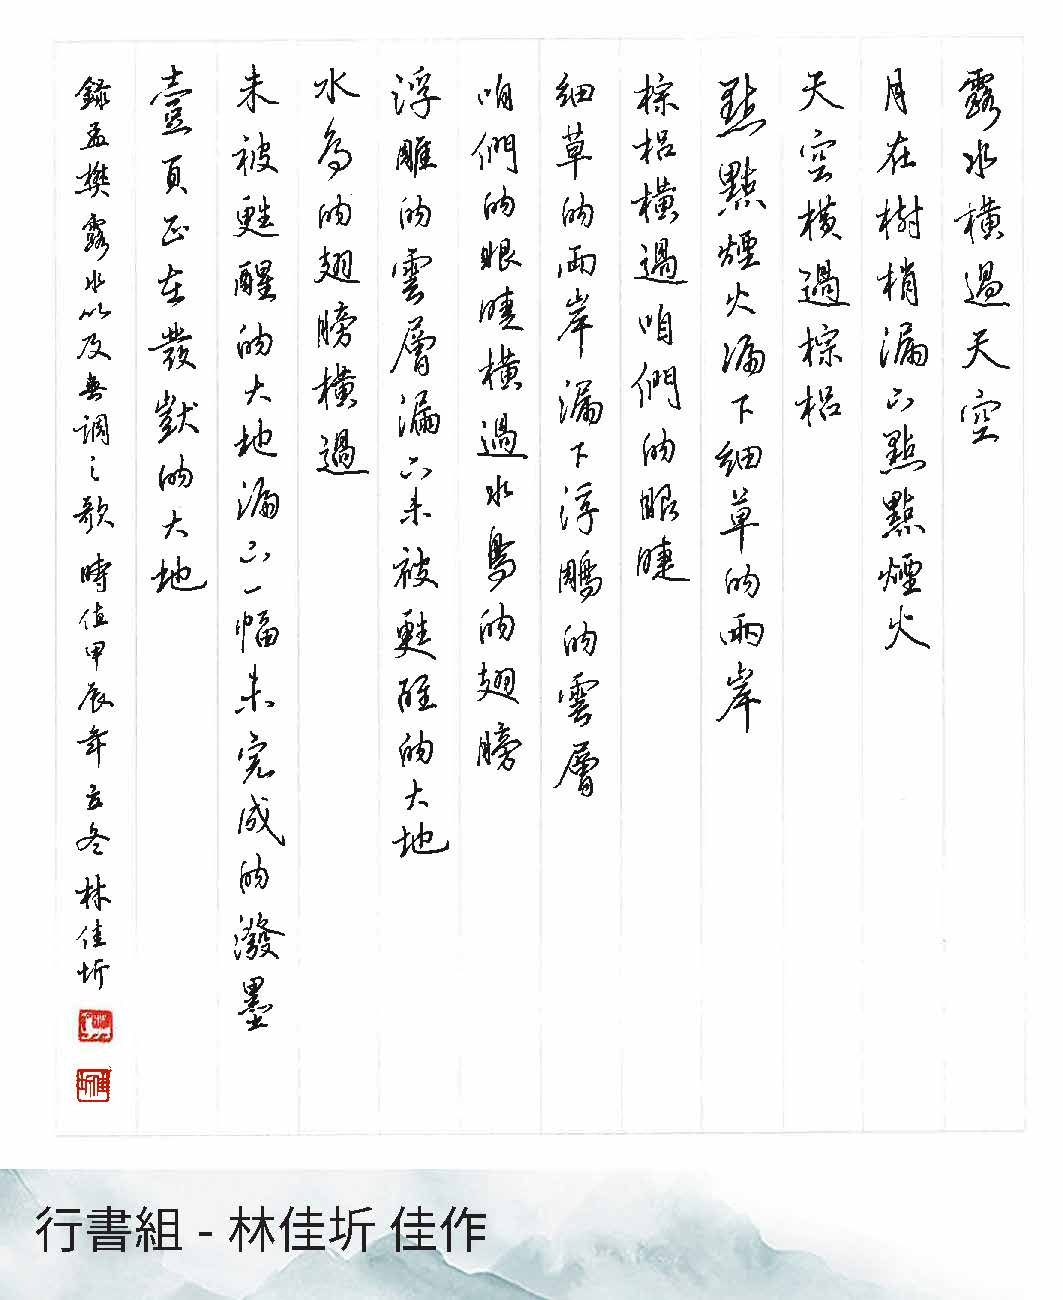 露水橫過天空
月在樹梢漏下點點煙火
天空橫過棕梠
點點煙火漏下細草的兩岸
棕梠橫過咱們的眼睫
細草的兩岸漏下浮鵰的雲層
咱們的眼睫橫過水鳥的翅膀
浮雕的雲層漏下未被甦醒的大地
水鳥的翅膀橫過
未被甦醒的大地漏下一幅未完成的潑墨
壹頁正在發獃的大地
錄孟樊露水以及無調之歌 時值甲辰年立冬 林佳圻
行書組 - 林佳圻 佳作